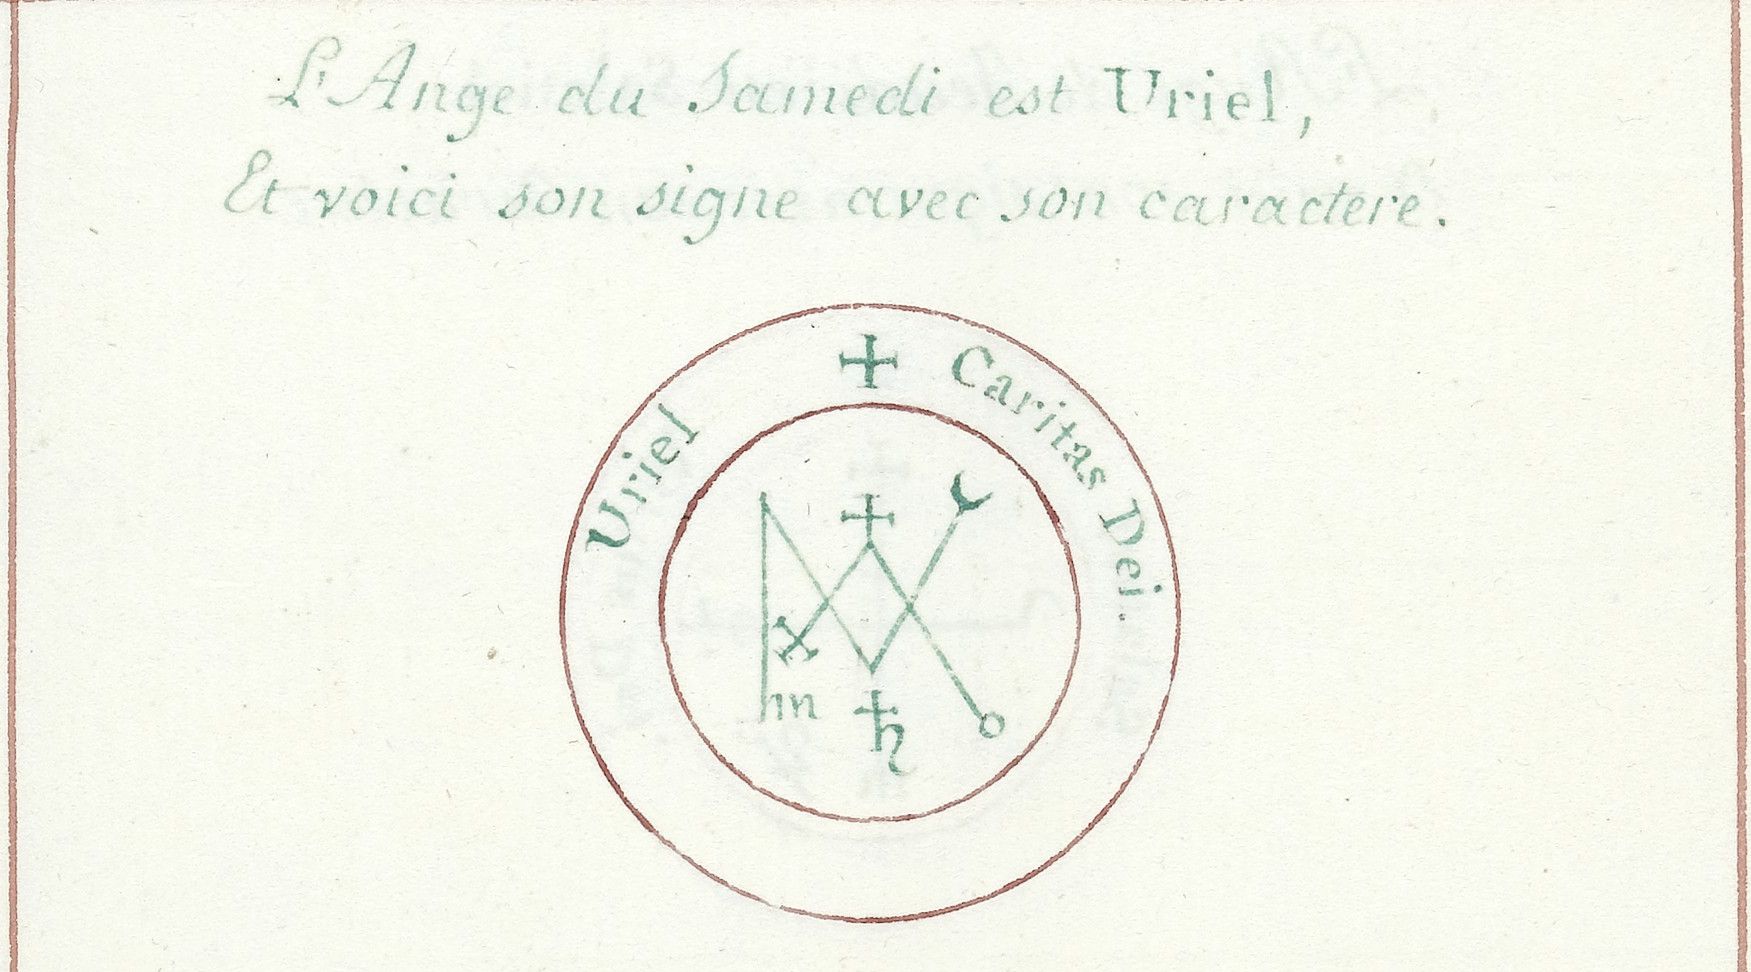 L'Ange du Samedi est Uriel,
Et voici son signe avec son caractere.
Uriel + Caritas Dei.
m
♄